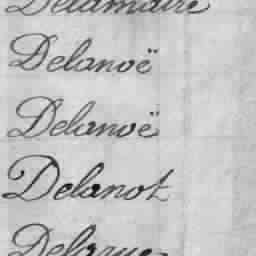 Delamaire
Delanoë
Delanoë
Delanot
Delarue